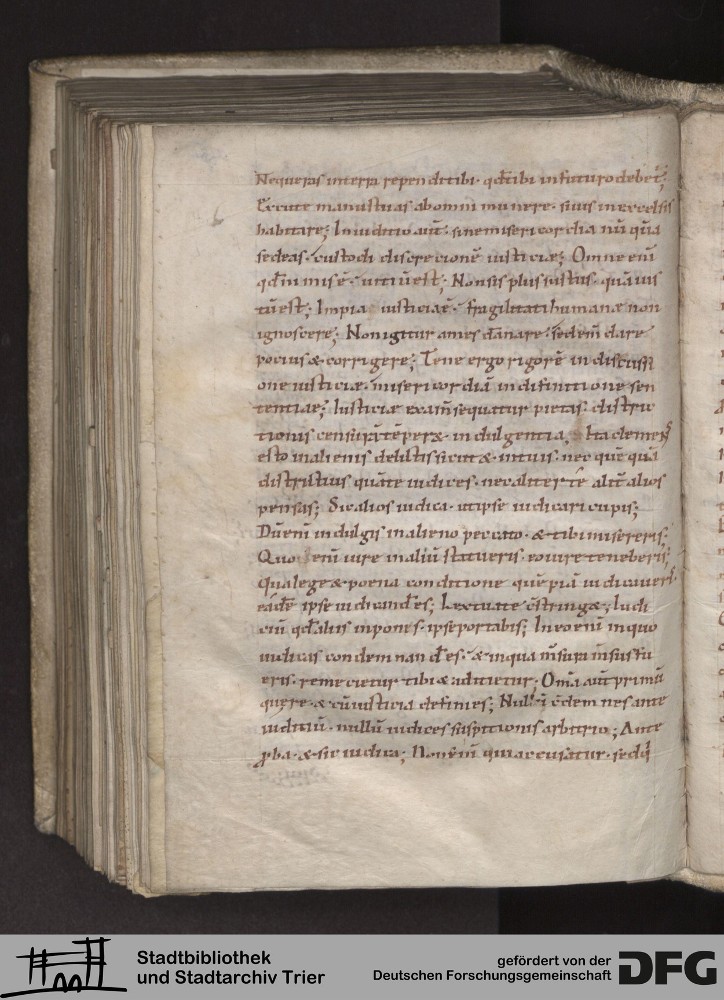 Nequeras interra rependi tibi· qd̄ tibi infuturo debet̄;
Excute manus tuas abomni munere· siuis inexcelsis
habitare; Iniuditio aut̄· sine misericordia nū quā
sedeas· custodi discrecionē iusticiae; Omne enī
qd̄ nimis ē· uitiū est; Non sis plus iustus· quā uis
tū est; Impia iusticiaē· fragilitati humanae non
ignoscere; Non igitur ames dānare· sed em̄dare
pocius & corrigere; Tene ergo rigorē indiscussi
one iusticiae· misericordiā indifinitione sen
tentiae; Iusticiae exam̄ sequatur pietas· distric
tionis censurā tēper& indulgentia; Ita clemens
esto inalienis delictis sicut & intuis· nec quē quā
districtius quā te iudices· nec aliter te alit̄ alios
penses; Sic alios iudica· ut ipse iudicari cupis;
Dū enī indulgis inalieno peccato· & tibi misereris;
Quo enī iure inaliū statueris· eo iure teneberis;
Qua lege & poena conditione quē piā iudicaueris·
eādē ipse iudicand̄ es; Lex tua te c̄stringa&; Iudi
ciū qd̄ aliis inponis· ipse portabis; In eo enī in quo
iudicas condemnand̄ es· & inqua m̄sura m̄sus fu
eris· remecietur tibi & aditietur; Om̄a aut̄ primū
quere· & cū iusticia definies; Null c̄dem nes ante
iuditiū· nullū iudices suspitionis arbitrio; Ante
ꝓba· & sic iudica; Non enī qui accusatur· sed q̄
Stadtbibliothek
und Stadtarchiv Trier
gefördert von der
Deutschen Forschungsgemeinschaft
DFG